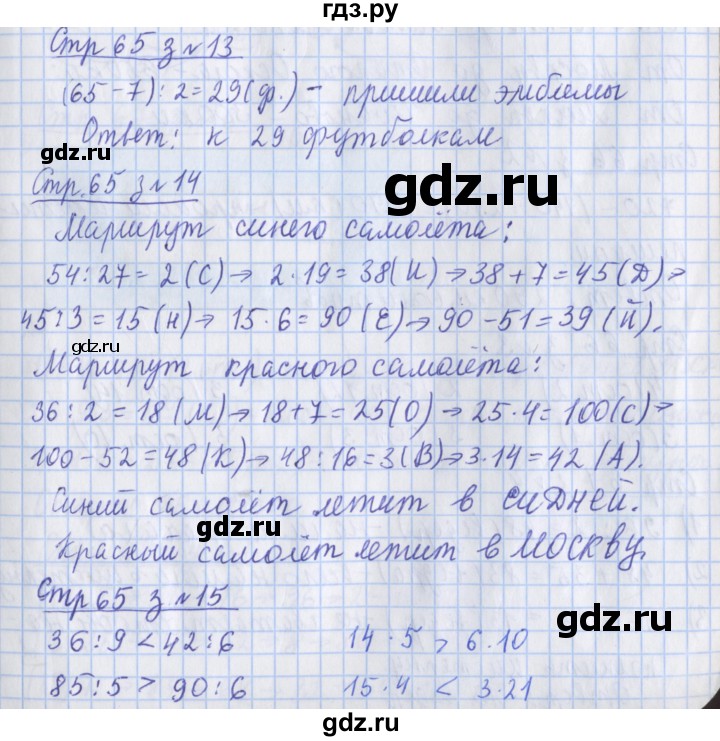 гдз.ру
Стр 65 з № 13
(65 - 7) : 2 = 29 (ф.) - пришили эмблемы
Ответ: к 29 футболкам
gdz.ru
gdz.ru
Стр. 65 з № 14
Маршрут синего самолёта:
54 : 27 = 2 (С) → 2 · 19 = 38 (И) → 38 + 7 = 45 (Д) →
45 : 3 = 15 (Н) → 15 · 6 = 90 (Е) → 90 - 51 = 39 (Й).
gdz.ru
gdz.ru
Маршрут красного самолёта:
36 : 2 = 18 (М) → 18 + 7 = 25 (О) → 25 · 4 = 100 (С) →
100 - 52 = 48 (К) → 48 : 16 = 3 (В) → 3 · 14 = 42 (А).
Синий самолёт летит в СИДНЕЙ.
gdz.ru
gdz.ru
Красный самолёт летит в МОСКВУ.
Стр 65 з № 15
36 : 9 < 42 : 6 14 · 5 > 6 · 10
gdz.ru
85 : 5 > 90 : 6 15 · 4 < 3 · 21
gdz.ru
gdz.ru